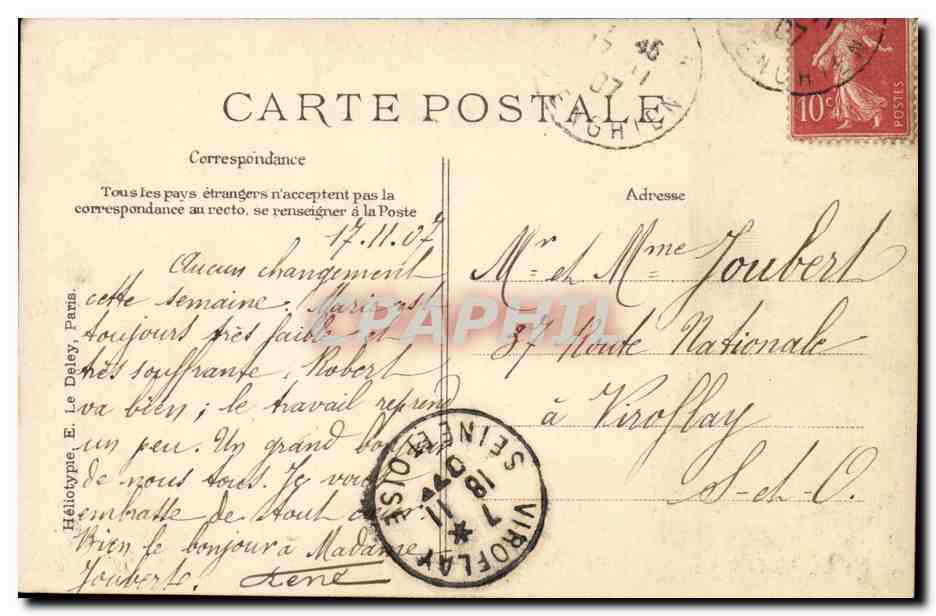 CARTE POSTALE
Correspondance
Tous les pays étrangers n'acceptent pas la
correspondance au recto, se renseigner à la Poste
17.11.07
Aucun changement
cette semaine. Marie est
toujours très faible et
très souffrante, Robert
va bien; le travail reprend
un peu. Un grand bonjour
de nous tous. Je vous
embrasse de tout
Bien le bonjour à Madame
Jouberte. René
Héliotypie, E. Le Deley, Paris.
Adresse
Mr et Mme Joubert
37 Route Nationale
à Viroflay
S-et-O.
10c POSTES
ENGHIEN
11
07
ENGHIEN
11
07
VIROFLAY
SEINE ET OISE
18
7 11
CPAPHIL